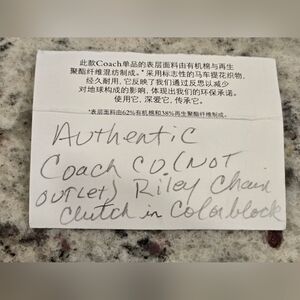 此款Coach单品的表层面料由有机棉与再生
聚酯纤维混纺制成。*采用标志性的马车提花织物,
经久耐用,它反映了我们通过反思以减少
对地球构成的影响,体现出我们的环保承诺。
使用它,深爱它,传承它。
*表层面料由62%有机棉和38%再生聚酯纤维制成。
Authentic
Coach CO (NOT
OUTLET) Riley Chain
Clutch in Colorblock